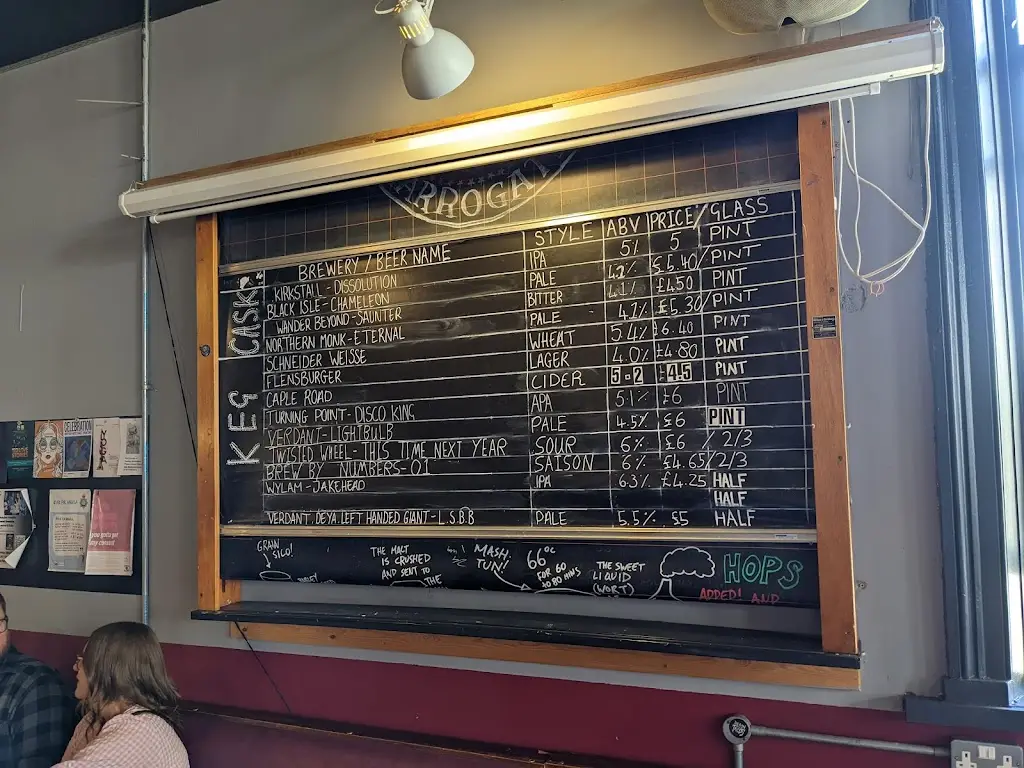 ARROGAT
BREWERY / BEER NAME STYLE ABV PRICE/GLASS
CASK
KIRKSTALL - DISSOLUTION IPA 5% 5 PINT
BLACK ISLE - CHAMELEON PALE 4.2% £5.40/PINT
WANDER BEYOND - SAUNTER BITTER 4.1% £4.50 PINT
NORTHERN MONK - ETERNAL PALE 4.1% £5.30/PINT
KEG
SCHNEIDER WEISSE WHEAT 5.4% £6.40 PINT
FLENSBURGER LAGER 4.0% £4.80 PINT
CAPLE ROAD CIDER 5.2 £4.5 PINT
TURNING POINT - DISCO KING APA 5.1% £6 PINT
VERDANT - LIGHTBULB PALE 4.5% £6 PINT
TWISTED WHEEL - THIS TIME NEXT YEAR SOUR 6% £6 / 2/3
BREW BY NUMBERS - 01 SAISON 6% £4.65/2/3
WYLAM - JAKEHEAD IPA 6.3% £4.25 HALF
HALF
VERDANT. DEYA. LEFT HANDED GIANT - L.S.B.B PALE 5.5% £5 HALF
GRAIN
SILO!
THE MALT
IS CRUSHED
AND SENT TO
THE
MASH
TUN!
66°C
FOR 60
TO 80 MINS
THE SWEET
LIQUID
(WORT)
HOPS
ADDED! AND
CELEBRATION